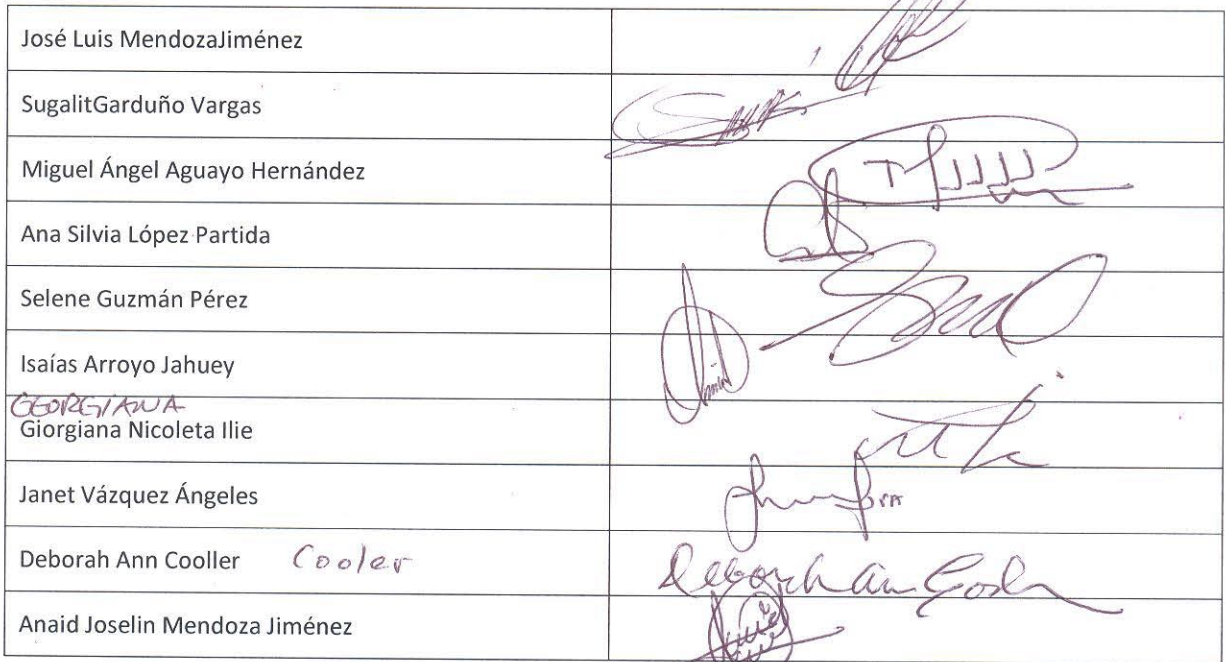 José Luis MendozaJiménez
SugalitGarduño Vargas
Miguel Ángel Aguayo Hernández
Ana Silvia López Partida
Selene Guzmán Pérez
Isaías Arroyo Jahuey
GEORGIANA
Giorgiana Nicoleta Ilie
Janet Vázquez Ángeles
Deborah Ann Cooller Cooler
Anaid Joselin Mendoza Jiménez